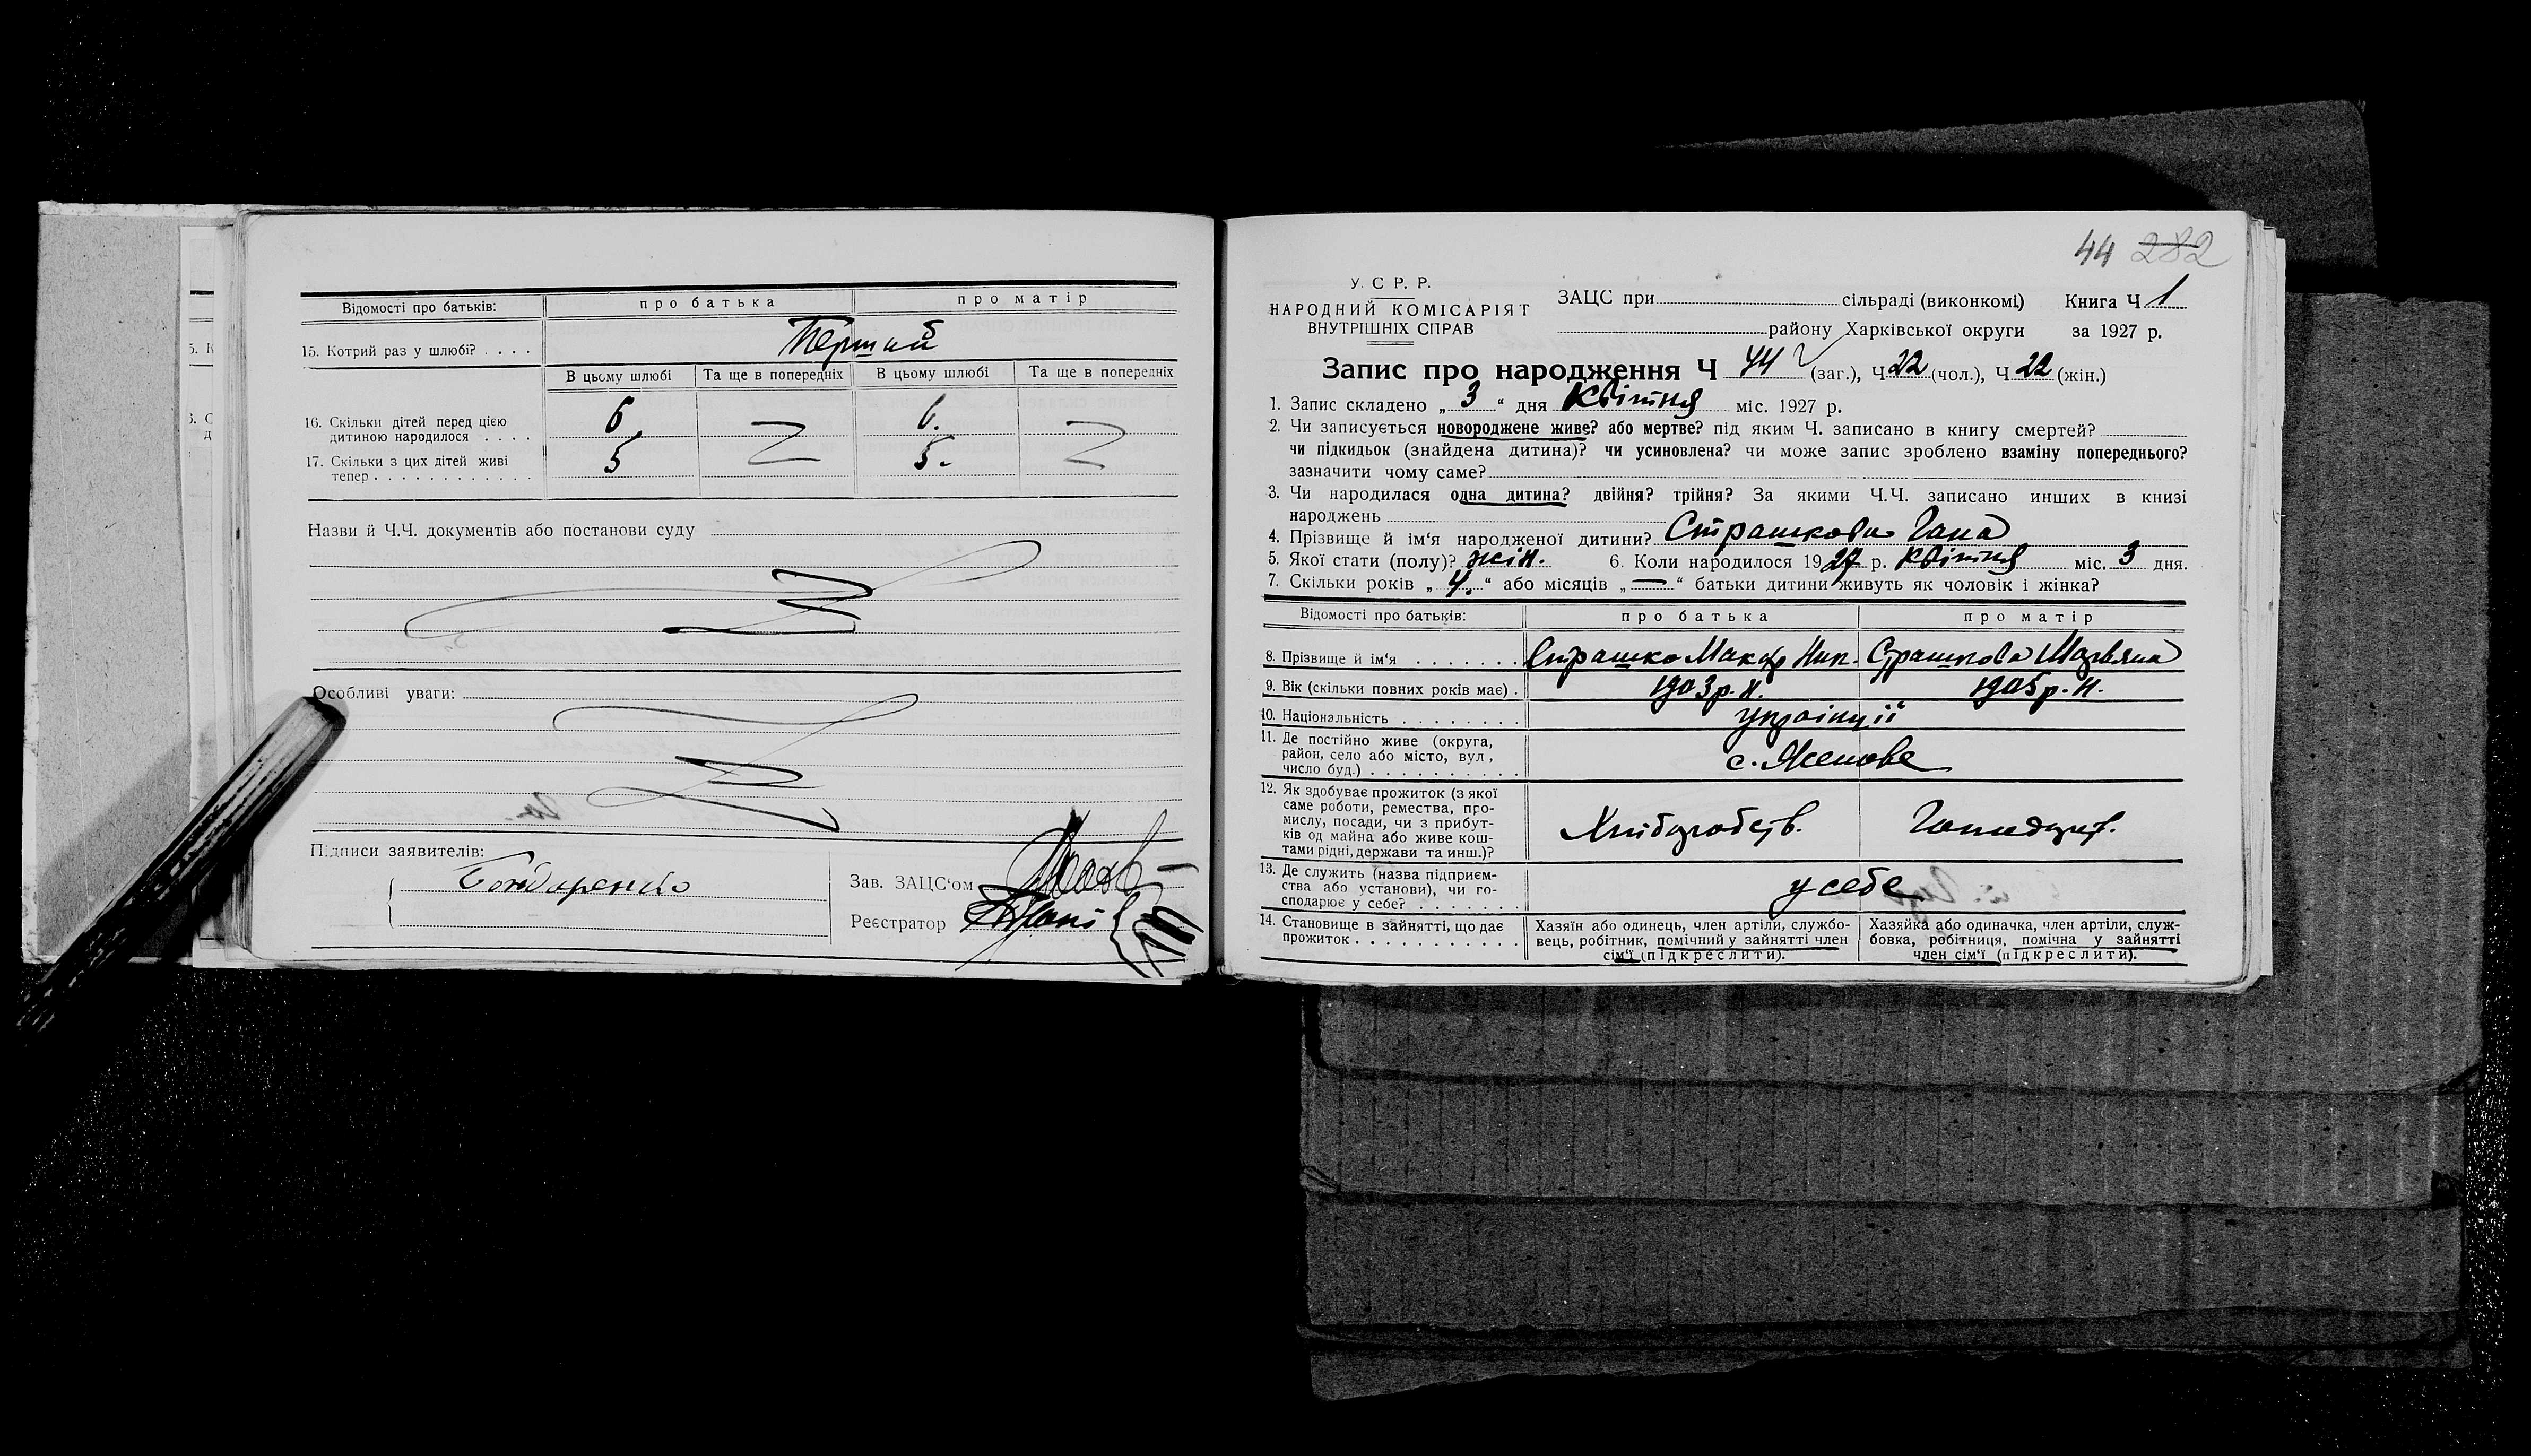 Відомості про батьків: про батька про матір
15. Котрий раз у шлюбі? . . . . Перший
В цьому шлюбі Та ще в попередніх В цьому шлюбі Та ще в попередніх
16. Скільки дітей перед цією
дитиною народилося . . . . 6 6.
17. Скільки з цих дітей живі
тепер . . . . . . . . . . . . 5 5.
Назви й Ч.Ч. документів або постанови суду
Особливі уваги:
Підписи заявителів:
Бондаренко
Зав. ЗАЦС'ом
Реєстратор
44 282
У. С. Р. Р.
НАРОДНИЙ КОМІСАРІЯТ
ВНУТРІШНІХ СПРАВ
ЗАЦС при сільраді (виконкомі) Книга Ч 1
району Харківської округи за 1927 р.
Запис про народження Ч 44 (заг.), Ч 22 (чол.), Ч 22 (жін.)
1. Запис складено „ 3 “ дня Квітня міс. 1927 р.
2. Чи записується новороджене живе? або мертве? під яким Ч. записано в книгу смертей?
чи підкидьок (знайдена дитина)? чи усиновлена? чи може запис зроблено взаміну попереднього?
зазначити чому саме?
3. Чи народилася одна дитина? двійня? трійня? За якими Ч.Ч. записано инших в книзі
народжень
4. Прізвище й ім'я народженої дитини? Страшкова Гана
5. Якої стати (полу)? жін. 6. Коли народилося 1927 р. Квітня міс. 3 дня.
7. Скільки років „ 4. “ або місяців „ — “ батьки дитини живуть як чоловік і жінка?
Відомості про батьків: про батька про матір
8. Прізвище й ім'я . . . . . . . Страшко Макар Ник. Страшкова
9. Вік (скільки повних років має) . 1903 р. н. 1905 р. н.
10. Національність . . . . . . . . українці
11. Де постійно живе (округа,
район, село або місто, вул.,
число буд.) . . . . . . . . . . с.
12. Як здобуває прожиток (з якої
саме роботи, ремества, про-
мислу, посади, чи з прибут-
ків од майна або живе кош-
тами рідні, держави та инш.)? Хліборобств.
13. Де служить (назва підприєм-
ства або установи), чи го-
сподарює у себе? . . . . . . . у себе
14. Становище в зайнятті, що дає
прожиток . . . . . . . . . . .
Хазяїн або одинець, член артіли, службо-
вець, робітник, помічний у зайнятті член
сім'ї (підкреслити).
Хазяйка або одиначка, член артіли, служ-
бовка, робітниця, помічна у зайнятті
член сім'ї (підкреслити).